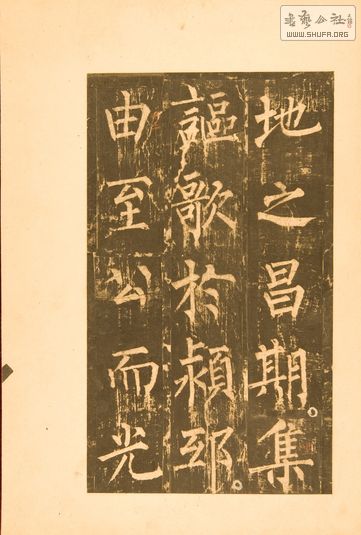 書藝公社
WWW.SHUFA.ORG
地之昌期。集
謳歌於潁邸。
由至公而光